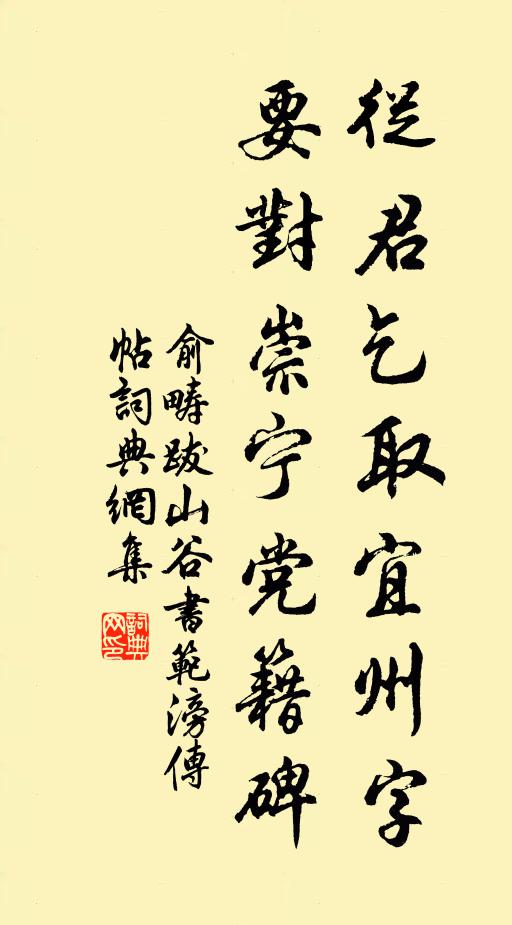 從君乞取宜州字
要對崇宁党籍碑
俞疇跋山谷書範滂傳
帖詞典網集
詞典
网印